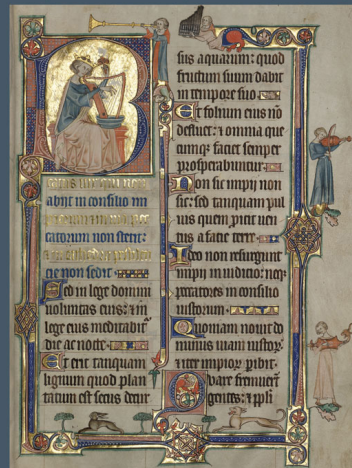 B
eatus vir qui non
abijt in consilio im
piorum et in via pec
catorum non stetit:
et in cathedra pestilen
cie non sedit.
Sed in lege domini
uoluntas eius: et in
lege eius meditabit̃
die ac nocte.
Et erit tanquam
lignum quod plan
tatum est secus decur
sus aquarum: quod
fructum suum dabit
in tempore suo.
Et folium eius nõ
defluet: et omnia que
cumqꝫ faciet semper
prosperabuntur.
Non sic impij non
sic: sed tanquam pul
uis quem proicit uen
tus a facie terre.
Ideo non resurgunt
impij in iudicio: neqꝫ
peccatores in consilio
iustorum.
Quoniam nouit do
minus uiam iustoꝝ:
et iter impioꝝ peribit.
Quare fremuerũt
gentes: et ppli